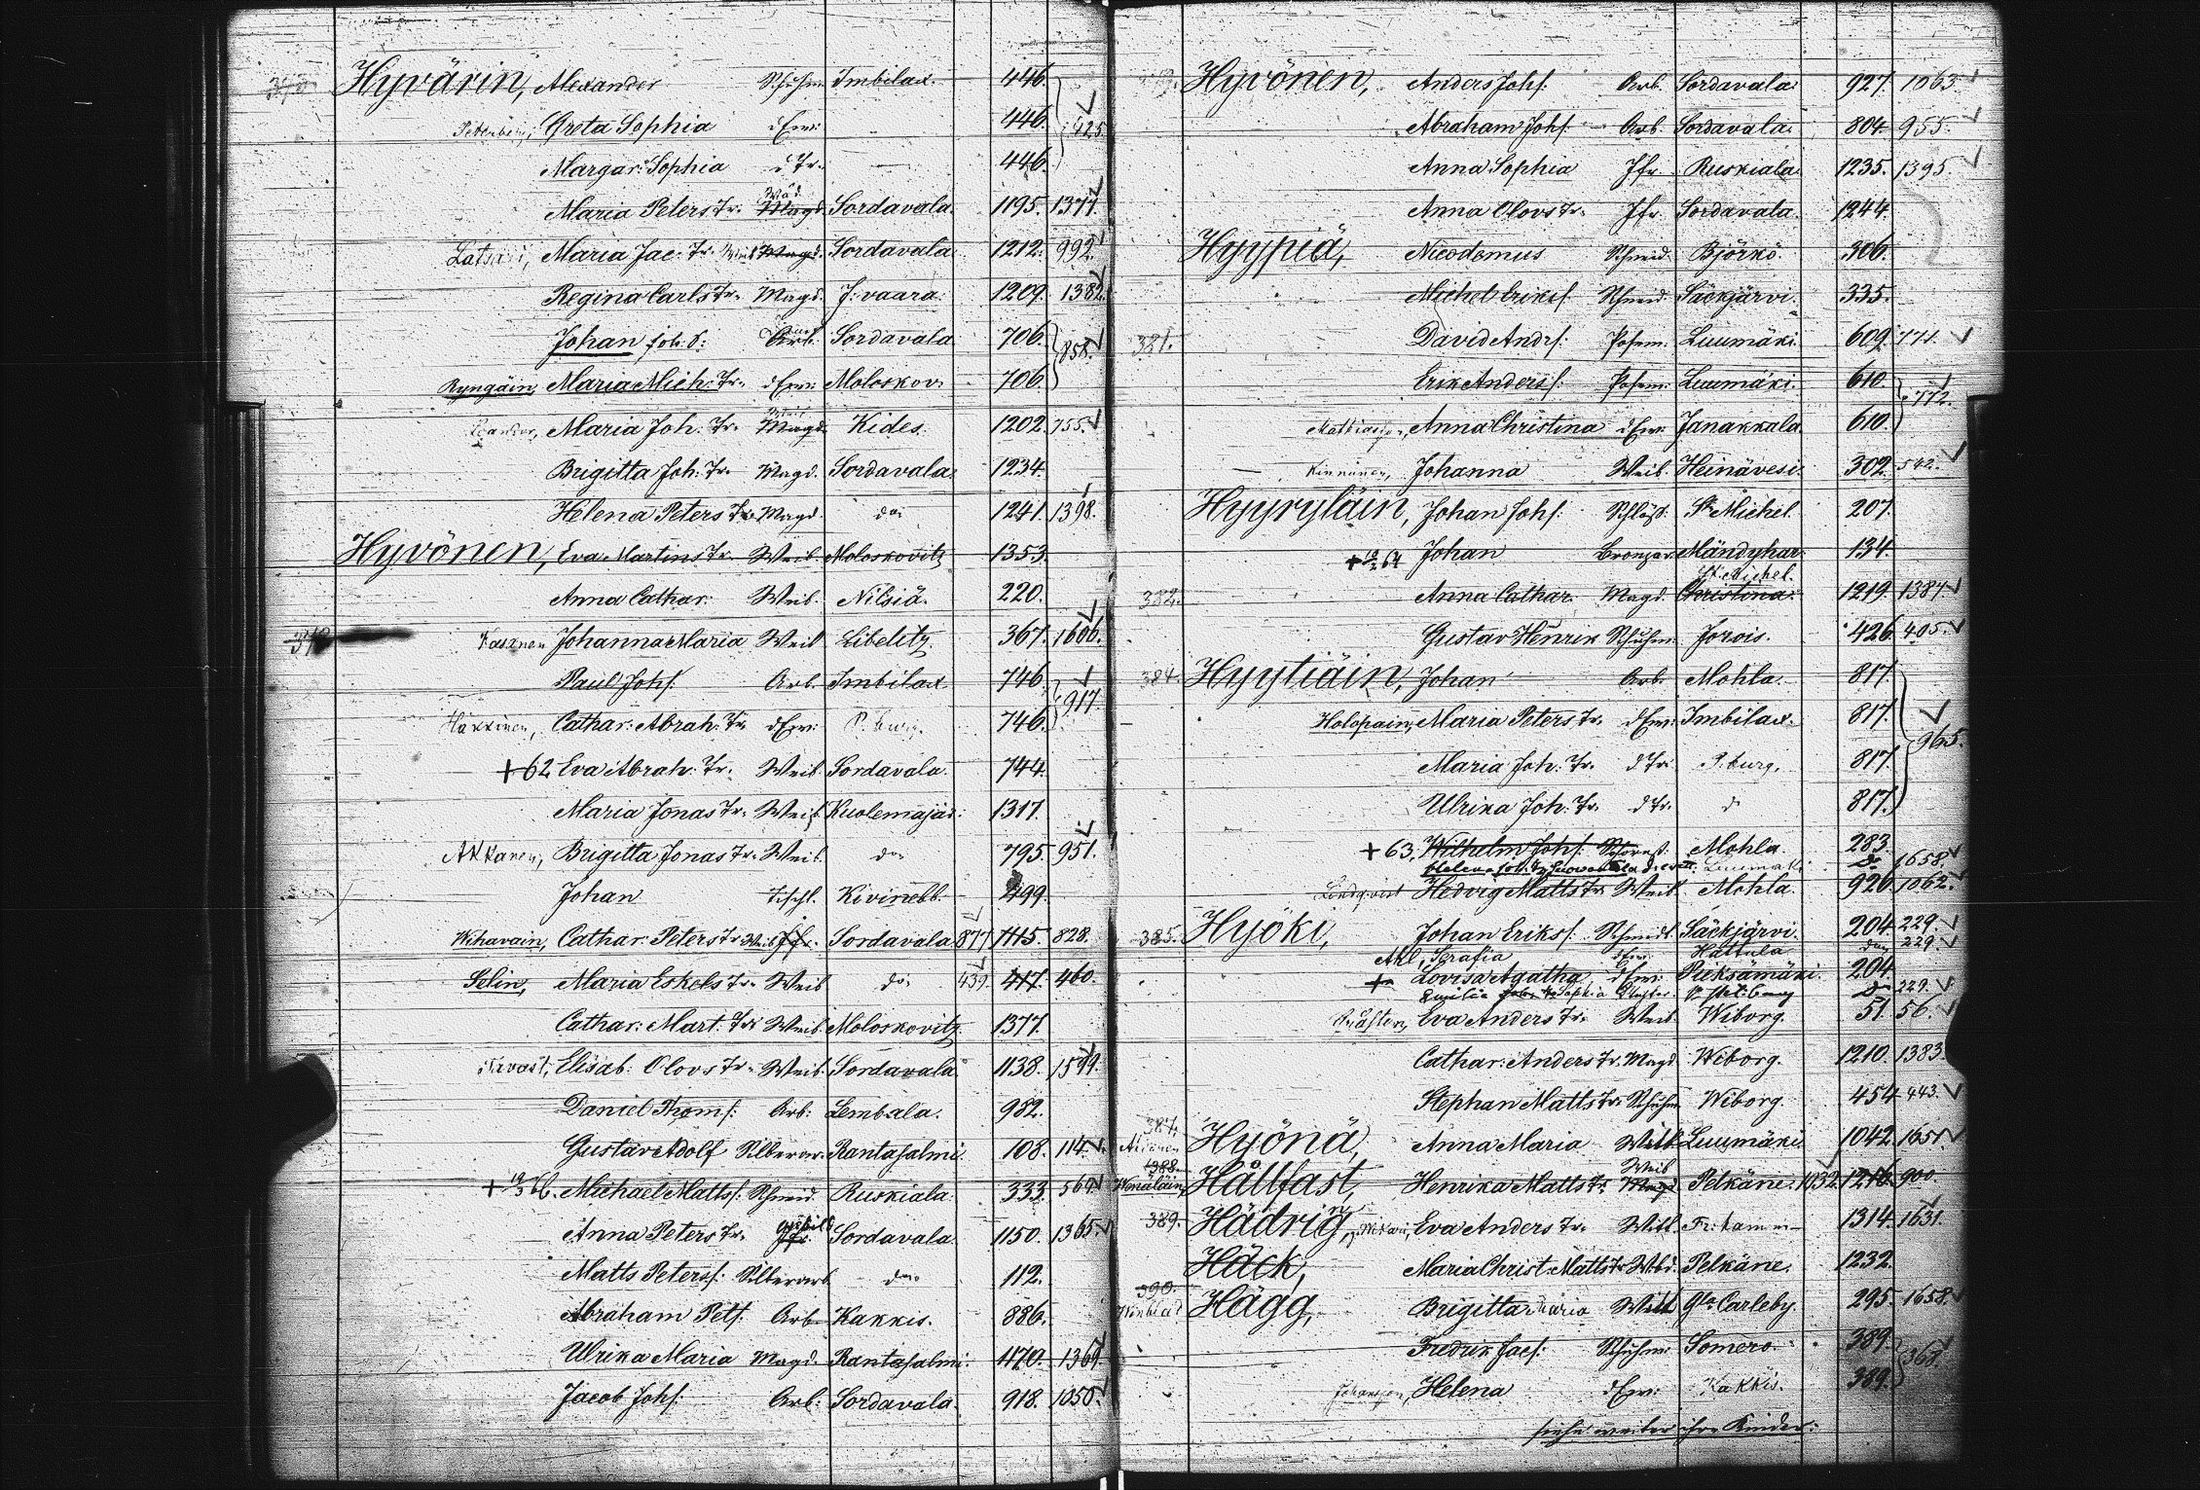 Hyvärin, Alexander Schuhm. Imbilax. 446.
Greta Sophia d Frau: 446. 425.
Margar: Sophia d Tr. 446.
Maria Peters Tr. Magd. Sordavala. 1195. 1377.
Maria Jac. Tr. Weib Magd. Sordavala. 1212. 992.
Regina Carls Tr. Magd. J:vaara. 1209. 1382.
Johan Joh. S: Arb. Sordavala 706. 858.
Ryngäin, Maria Mich: Tr. d Frau: Moloskov. 706.
Maria Joh: Tr. Magd. Kides. 1202. 755.
Brigitta Joh: Tr. Magd. Sordavala. 1234.
Helena Peters Tr. Magd. do. 1241. 1398.
Hyvönen, Eva Martins Tr. Weib. Moloskovitz 1353.
Anna Cathar: Weib. Nilsiä. 220.
Johanna Maria Weib Libelitz. 367. 1606.
Paul Johs. Arb. Imbilax. 746. 917.
Häkkinen, Cathar: Abrah: Tr. d Frau: P. burg. 746.
+ 62 Eva Abrah: Tr. Weib. Sordavala. 744.
Maria Jonas Tr. Weib Kuolemajär: 1317.
Akkanen, Brigitta Jonas Tr. Weib. do. 795. 951.
Johan Tischl. Kivinebb. 499.
Wihavain, Cathar: Peters Tr. Weib Jfr. Sordavala 877 1115. 828.
Selin, Maria Eskels Tr. Weib do. 439. 417. 460.
Cathar: Mart. Tr. Weib. Moloskovitz 1377.
Elisab: Olovs Tr. Weib. Sordavala 1138. 1599.
Daniel Thoms: Arb: Lembala. 982.
Gustav Adolf Silberar. Rantasalmi. 108. 114.
Michael Matts: Schmid. Ruskiala. 333. 567.
Anna Peters Tr. Jfr. Sordavala. 1150. 1365.
Matts Peters: Silberarb. do. 112.
Abraham Pets. Arb. Kakkis. 886.
Ulrika Maria Magd. Rantasalmi. 470. 1369.
Jacob Johs. Arb: Sordavala. 918. 1050.
Hyvönen, Anders Johs: Arb. Sordavala 927. 1063.
Abraham Johs: Arb. Sordavala. 804. 955.
Anna Sophia Jfr. Ruskiala. 1235. 1395.
Anna Olovs Tr. Jfr. Sordavala. 1244.
Hyypiä, Nicodemus Schmid. Björkö. 306.
Michel Eriks: Schmid. Säckjärvi. 335.
381. David Andrs: Posam. Luumäki. 609. 771.
Erik Anderss: Posam: Luumäki. 610. 772.
Anna Christina d Frau: Janakkala 610.
Kinnunen, Johanna Weib. Heinävesi. 302. 542.
Hyyryläin, Johan Johs: Schloss. St. Michel. 207.
Johan Bronzar. Mändyhar: 134.
St. Michel.
382. Anna Cathar. Magd. Christina. 1219. 1384.
Gustav Henrik Schuhm. Jorois. 426. 405.
384. Hyytiäin, Johan Arb. Mohla. 817.
Holopain, Maria Peters Tr. d Frau: Imbilax. 817. 965.
Maria Joh: Tr. d Tr. P. burg. 817.
Ulrika Joh: Tr. d Tr. d 817.
+ 63. Wilhelm Johs: Mohla. 283.
1658.
Hedvig Matts Tr. Weib Mohla. 926. 1062.
385. Hyöki, Johan Eriks: Schmidt Säckjärvi. 204. 229.
Serafia Hattula do 229.
Lovisa Agatha d Frau: Pieksämäki. 204.
Emilia 229.
Eva Anders Tr. Weib. Wiborg. 51. 56.
Cathar: Anders Tr. Magd. Wiborg. 1210. 1383.
Stephan Matts Tr. Schuhm. Wiborg. 454. 443.
387. Hyönä, Anna Maria Witt Luumäki 1042. 1651.
388. Weib
Hällfast, Henrika Matts Tr. Magd. Pelkäne. 1032. 1216. 900.
389. Hädrig, Eva Anders Tr. Witt. Fr: hamn 1314. 1631.
Häck, Maria Christ: Matts Tr. Wbd. Pelkäne. 1232.
390. Hägg, Brigitta Maria Witt Gla Carleby. 295. 1658.
Fredrik Jacs: Schuhm. Somero. 389. 368.
Johansson, Helena d Frau: Kakkis. 389.
siehe weiter ihre Kinder: